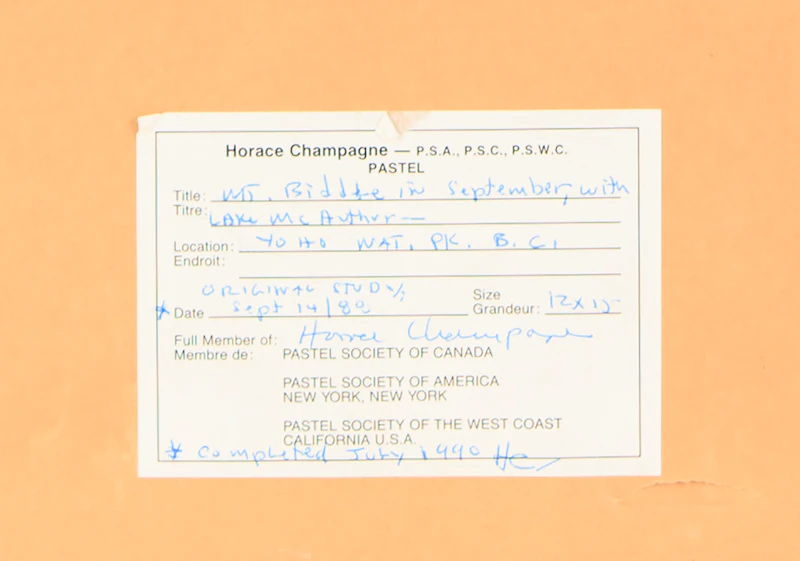 Horace Champagne — P.S.A., P.S.C., P.S.W.C.
PASTEL
Title: MT. Biddle in September, with
Titre: LAKE Mc Arthur—
Location: YOHO NAT. PK. B.C.
Endroit:
ORIGINAL STUDY
* Date Sept 14/
Size
Grandeur: 12x15
Full Member of: Horace Champagne
Membre de: PASTEL SOCIETY OF CANADA
PASTEL SOCIETY OF AMERICA
NEW YORK, NEW YORK
PASTEL SOCIETY OF THE WEST COAST
CALIFORNIA U.S.A.
* Completed July 1990